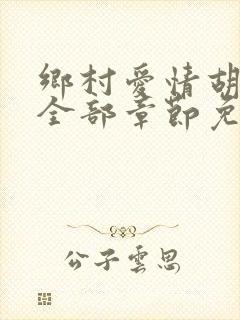 鄉村愛情胡
全部章節免
公子雲思